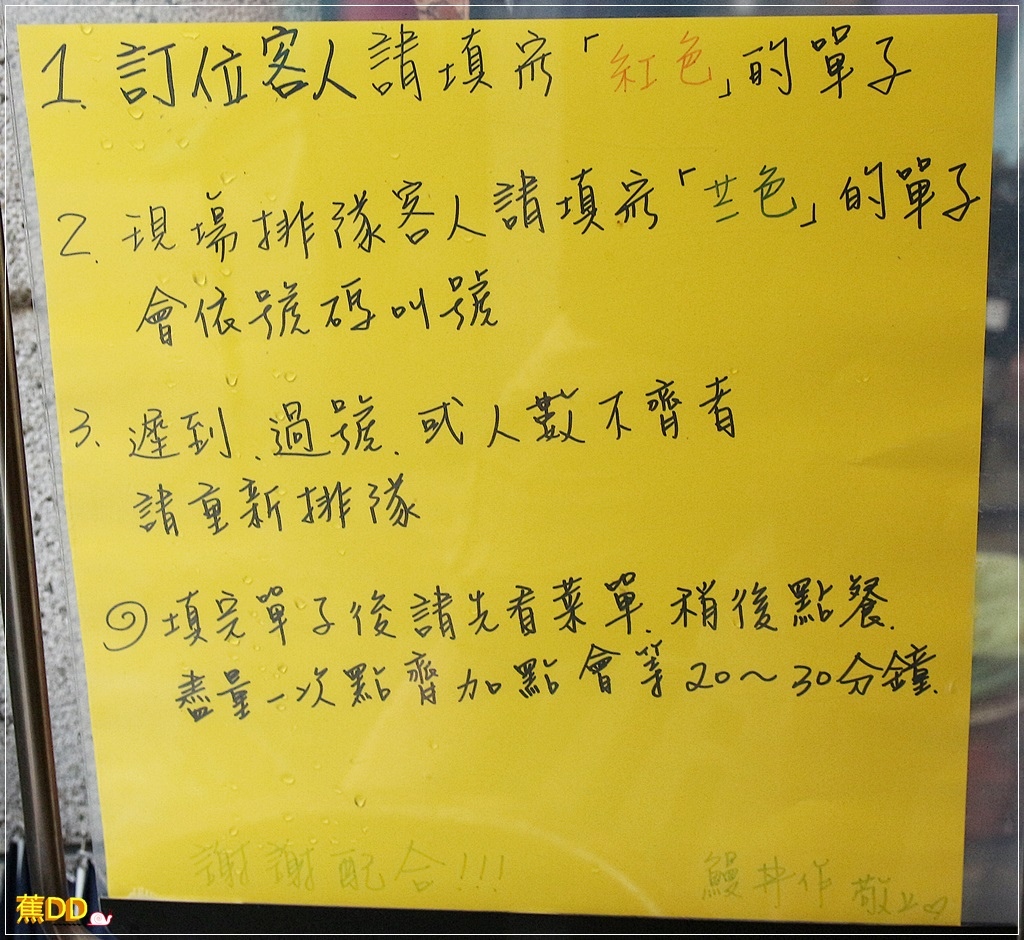 1. 訂位客人請填寫「紅色」的單子
2. 現場排隊客人請填寫「色」的單子
會依號碼叫號
3. 遲到、過號、或人數不齊者
請重新排隊
填完單子後請先看菜單、稍後點餐.
盡量一次點齊加點會等20～30分鐘.
謝謝配合!!!
鰻丼作 敬上♡
蕉DD